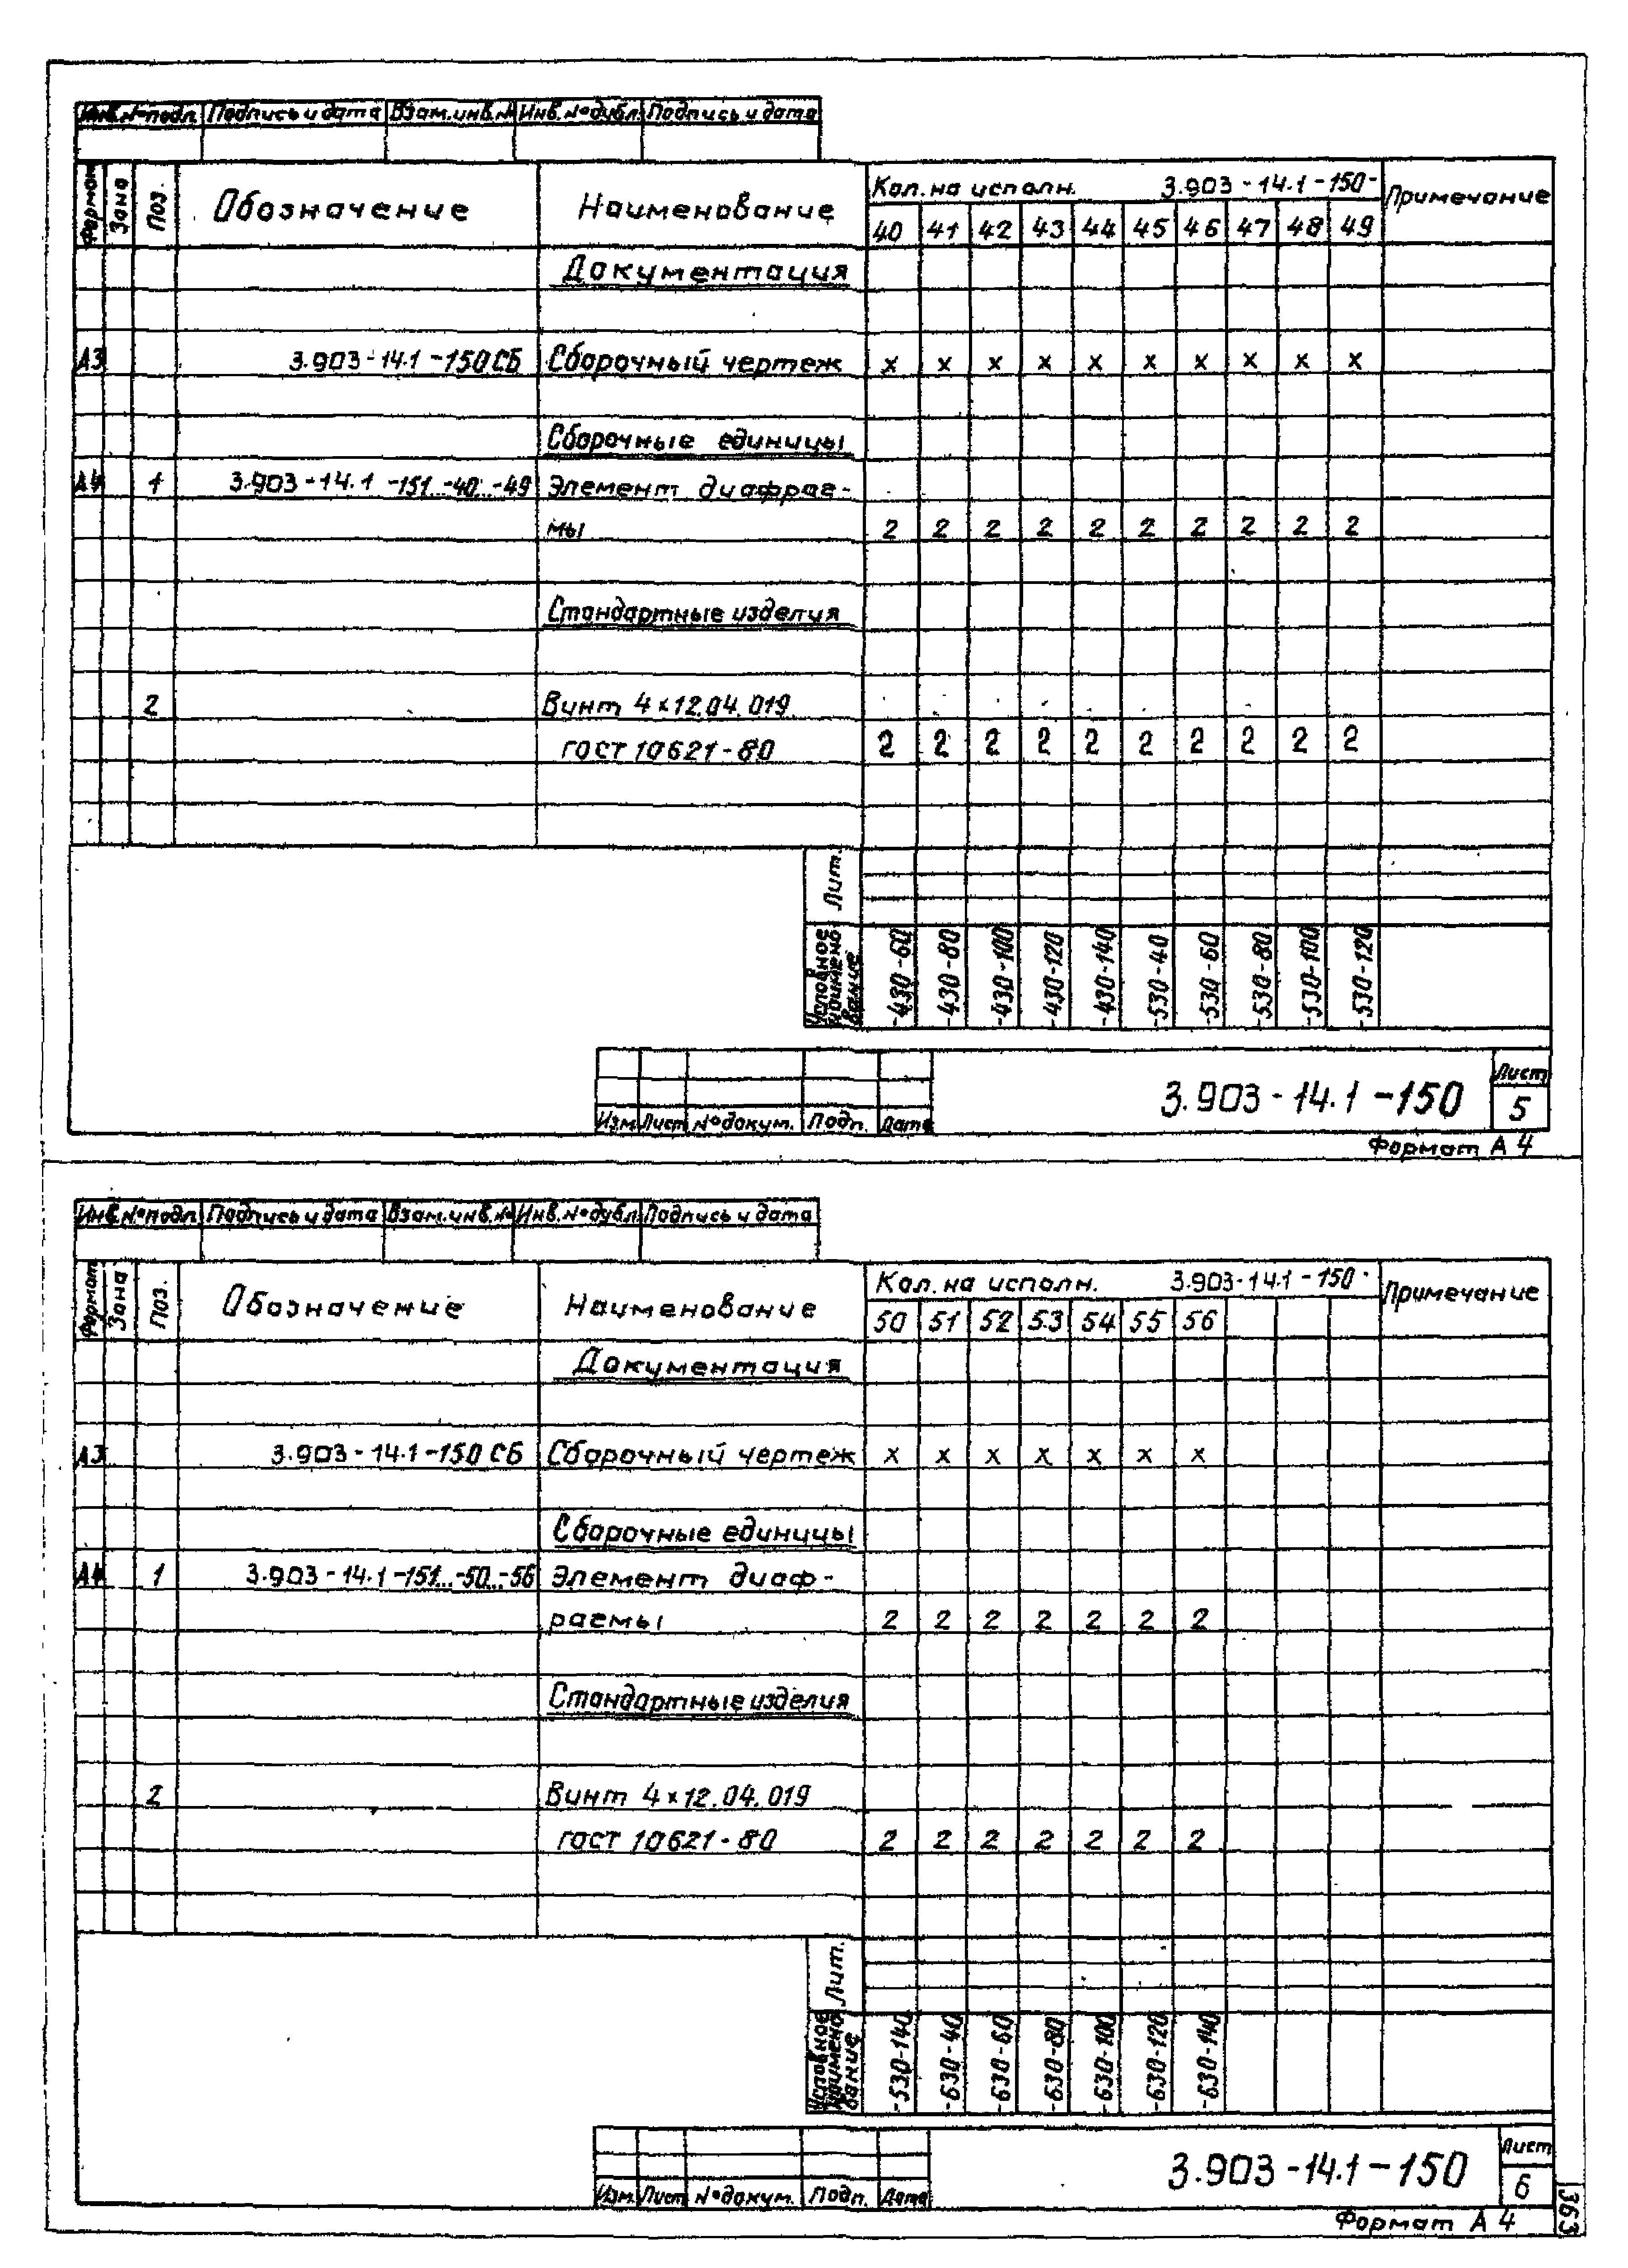 Инв.№подл. Подпись и дата Взам.инв.№ Инв.№дубл. Подпись и дата
Формат Зона Поз. Обозначение Наименование Кол. на исполн. 3.903-14.1-150- Примечание
40 41 42 43 44 45 46 47 48 49
Документация
А3 3.903-14.1-150СБ Сборочный чертеж х х х х х х х х х х
Сборочные единицы
А4 1 3.903-14.1-151...-40...-49 Элемент диафраг-
мы 2 2 2 2 2 2 2 2 2 2
Стандартные изделия
2 Винт 4×12.04.019
ГОСТ 10621-80 2 2 2 2 2 2 2 2 2 2
Лит.
Условное наименование -430-60 -430-80 -430-100 -430-120 -430-140 -530-40 -530-60 -530-80 -530-100 -530-120
3.903-14.1-150 Лист
5
Изм. Лист №докум. Подп. Дата
Формат А4
Инв.№подл. Подпись и дата Взам.инв.№ Инв.№дубл. Подпись и дата
Формат Зона Поз. Обозначение Наименование Кол. на исполн. 3.903-14.1-150- Примечание
50 51 52 53 54 55 56
Документация
А3 3.903-14.1-150 СБ Сборочный чертеж х х х х х х х
Сборочные единицы
А4 1 3.903-14.1-151...-50...-56 Элемент диаф-
рагмы 2 2 2 2 2 2 2
Стандартные изделия
2 Винт 4×12.04.019
ГОСТ 10621-80 2 2 2 2 2 2 2
Лит.
Условное наименование -530-140 -630-40 -630-60 -630-80 -630-100 -630-120 -630-140
3.903-14.1-150 Лист
6
Изм. Лист №докум. Подп. Дата
Формат А4
1363